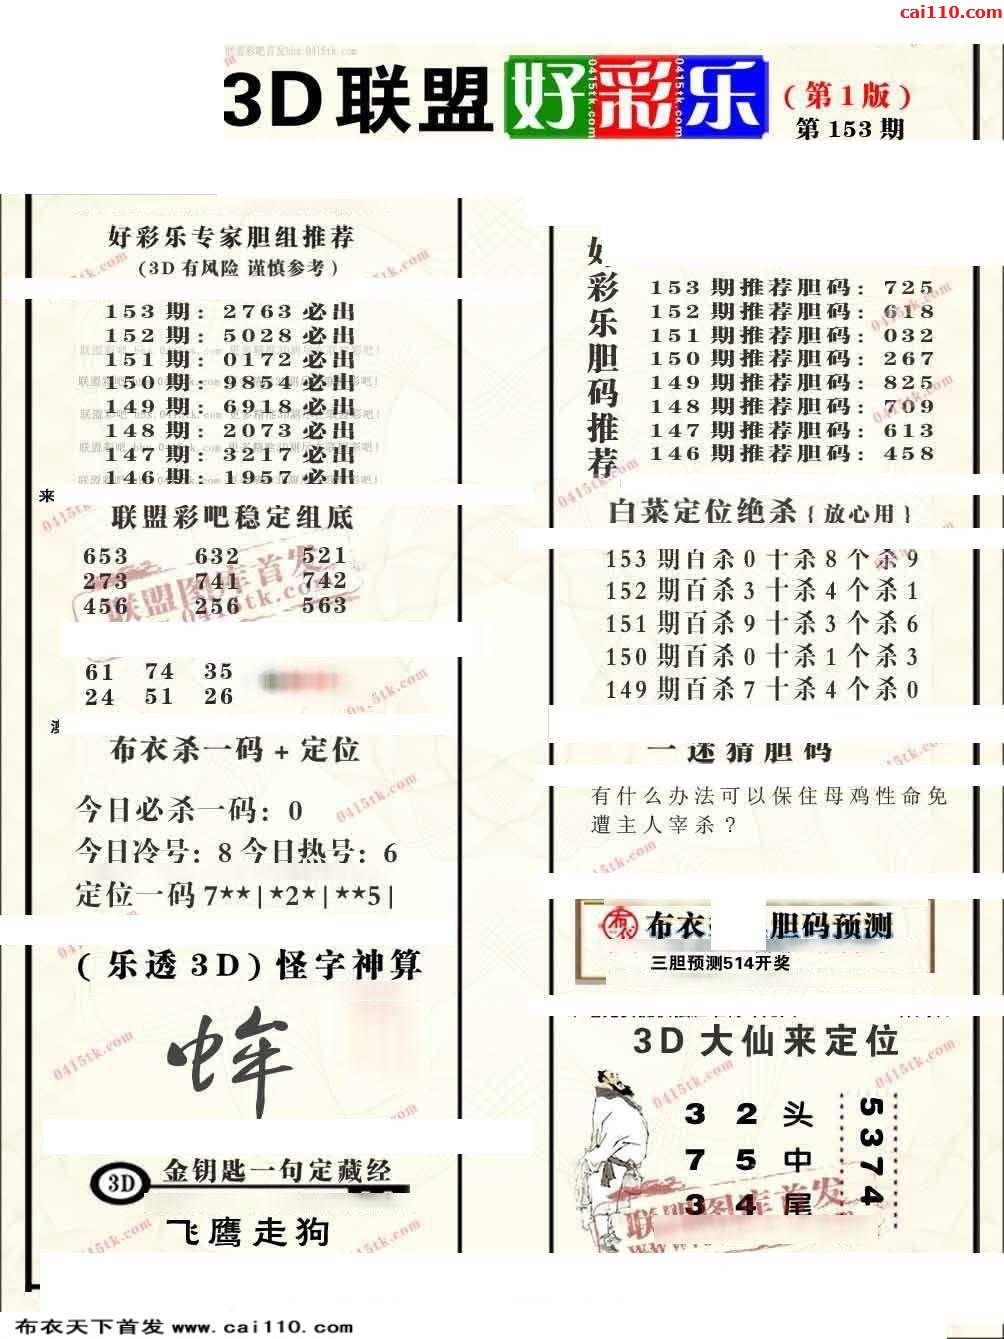 cai110.com
3D联盟 好彩乐 (第1版)
第153期
好彩乐专家胆组推荐
(3D有风险 谨慎参考)
153期: 2763必出
152期: 5028必出
151期: 0172必出
150期: 9854必出
149期: 6918必出
148期: 2073必出
147期: 3217必出
146期: 1957必出
来
联盟彩吧稳定组底
653 632 521
273 741 742
456 256 563
联盟图库首发
0415tk.com
61 74 35
24 51 26
布衣杀一码+定位
今日必杀一码: 0
今日冷号: 8 今日热号: 6
定位一码 7**|*2*|**5|
(乐透3D)怪字神算
3D 金钥匙一句定藏经
飞鹰走狗
好彩乐胆码推荐
153期推荐胆码: 725
152期推荐胆码: 618
151期推荐胆码: 032
150期推荐胆码: 267
149期推荐胆码: 825
148期推荐胆码: 709
147期推荐胆码: 613
146期推荐胆码: 458
白菜定位绝杀{放心用}
153期百杀0十杀8个杀9
152期百杀3十杀4个杀1
151期百杀9十杀3个杀6
150期百杀0十杀1个杀3
149期百杀7十杀4个杀0
一迷猜胆码
有什么办法可以保住母鸡性命免
遭主人宰杀?
布衣 胆码预测
三胆预测514开奖
3D大仙来定位
3 2 头
7 5 中
3 4 尾
5374
联盟图库首发
布衣天下首发 www.cai110.com